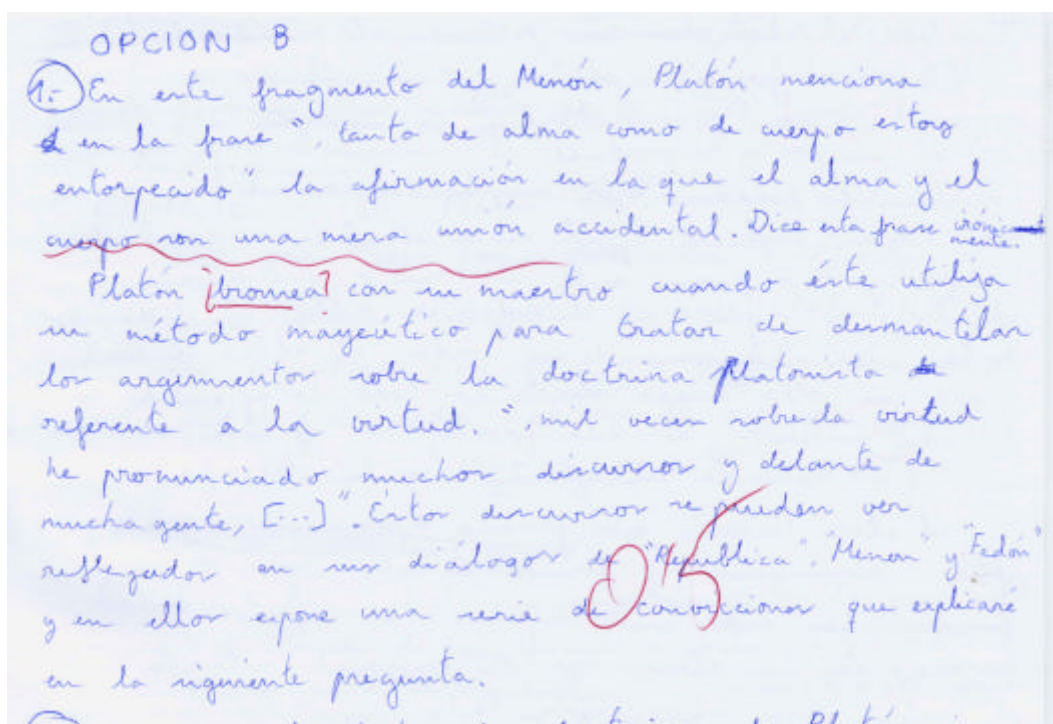 OPCION B
1.- En este fragmento del Menón, Platón menciona
en la frase ", tanto de alma como de cuerpo estoy
entorpecido" la afirmación en la que el alma y el
cuerpo son una mera unión accidental. Dice esta frase irónicamente.
Platón ¿bromea? con su maestro cuando éste utiliza
su método mayeútico para tratar de desmantelar
los argumentos sobre la doctrina Platonista
referente a la virtud. ", mil veces sobre la virtud
he pronunciado muchos discursos y delante de
mucha gente, [...]". Estos discursos se pueden ver
reflejados en sus diálogos de "República", "Menon" y "Fedón"
y en ellos expone una serie de convicciones que explicaré
en la siguiente pregunta.
0'5